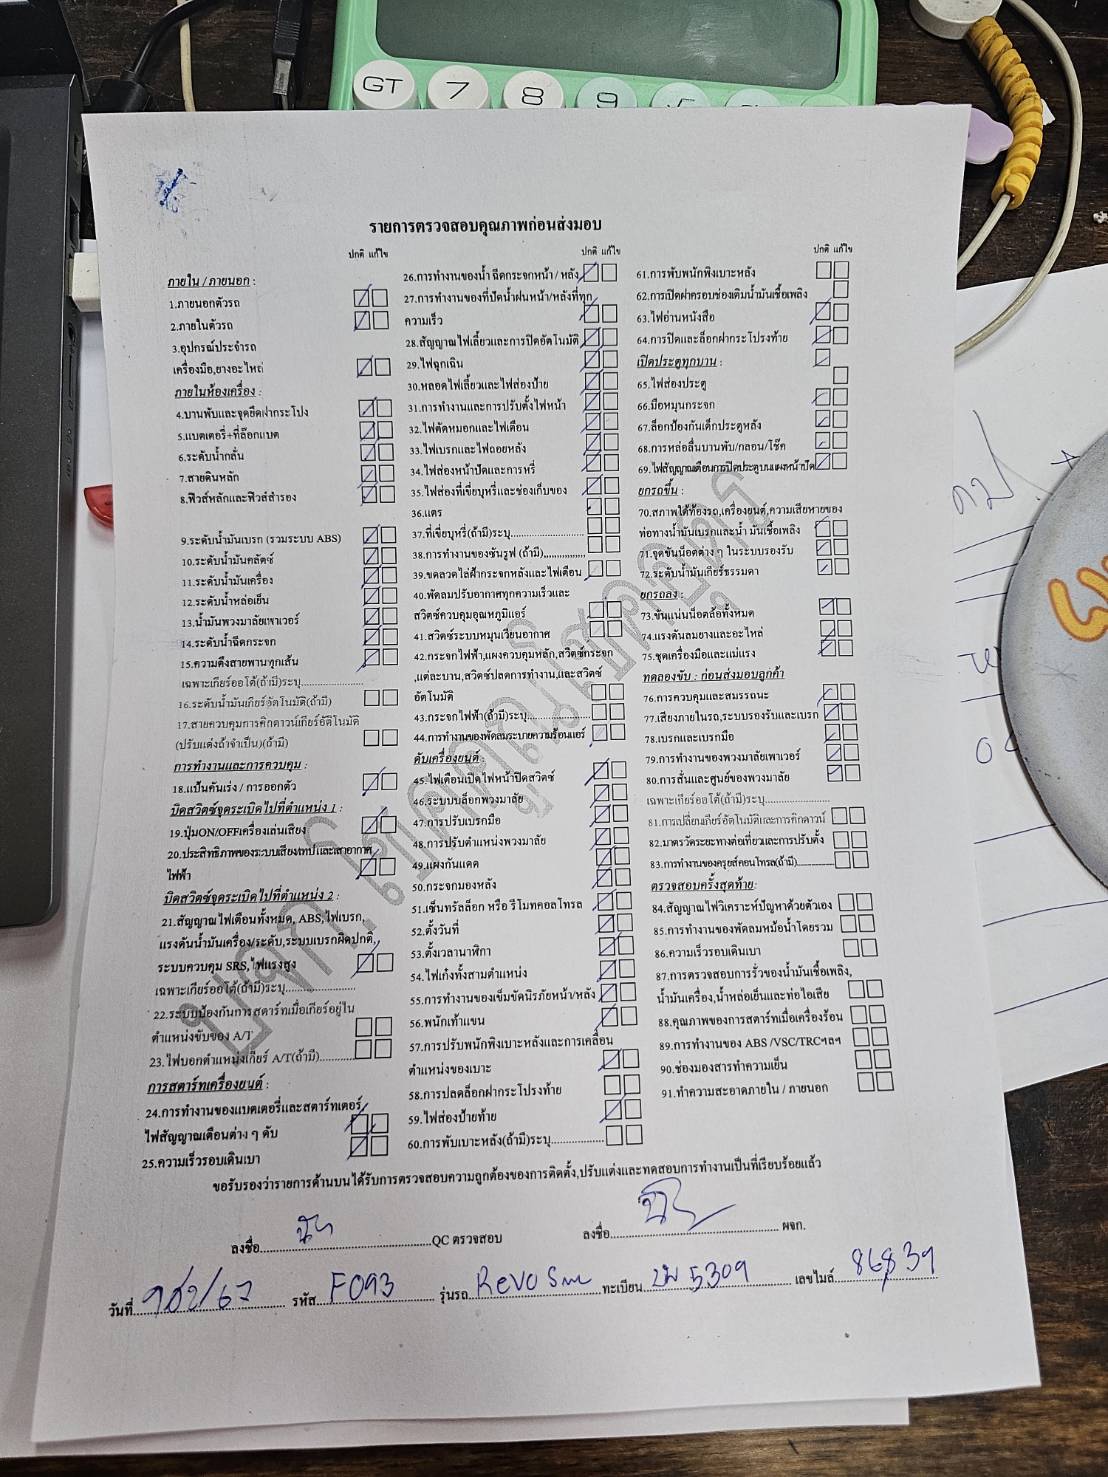 GT 7 8 9
รายการตรวจสอบคุณภาพก่อนส่งมอบ
ปกติ แก้ไข
ภายใน / ภายนอก :
1.ภายนอกตัวรถ
2.ภายในตัวรถ
3.อุปกรณ์ประจำรถ
เครื่องมือ,ยางอะไหล่
ภายในห้องเครื่อง :
4.บานพับและจุดยึดฝากระโปง
5.แบตเตอรี่+ที่ล๊อกแบต
6.ระดับน้ำกลั่น
7.สายดินหลัก
8.ฟิวส์หลักและฟิวส์สำรอง
9.ระดับน้ำมันเบรก (รวมระบบ ABS)
10.ระดับน้ำมันคลัตช์
11.ระดับน้ำมันเครื่อง
12.ระดับน้ำหล่อเย็น
13.น้ำมันพวงมาลัยเพาเวอร์
14.ระดับน้ำฉีดกระจก
15.ความตึงสายพานทุกเส้น
เฉพาะเกียร์ออโต้(ถ้ามี)ระบุ
16.ระดับน้ำมันเกียร์อัตโนมัติ(ถ้ามี)
17.สายควบคุมการคิกดาวน์เกียร์อัติโนมัติ
(ปรับแต่งถ้าจำเป็น)(ถ้ามี)
การทำงานและการควบคุม :
18.แป้นคันเร่ง / การออกตัว
บิดสวิตช์จุดระเบิดไปที่ตำแหน่ง 1 :
19.ปุ่มON/OFFเครื่องเล่นเสียง
20.ประสิทธิภาพของระบบเสียงเทปและเสาอากาศ
ไฟฟ้า
บิดสวิตซ์จุดระเบิดไปที่ตำแหน่ง 2 :
21.สัญญาณไฟเตือนทั้งหมด, ABS,ไฟเบรก,
แรงดันน้ำมันเครื่อง/ระดับ,ระบบเบรกผิดปกติ,
ระบบควบคุม SRS,ไฟแรงสูง
เฉพาะเกียร์ออโต้(ถ้ามี)ระบุ
22.ระบบป้องกันการสตาร์ทเมื่อเกียร์อยู่ใน
ตำแหน่งขับของ A/T
23.ไฟบอกตำแหน่งเกียร์ A/T(ถ้ามี)
การสตาร์ทเครื่องยนต์ :
24.การทำงานของแบตเตอรี่และสตาร์ทเตอร์
ไฟสัญญาณเตือนต่าง ๆ ดับ
25.ความเร็วรอบเดินเบา
ปกติ แก้ไข
26.การทำงานของน้ำ ฉีดกระจกหน้า / หลัง
27.การทำงานของที่ปัดน้ำฝนหน้า/หลังที่ทุก
ความเร็ว
28.สัญญาณไฟเลี้ยวและการปิดอัตโนมัติ
29.ไฟฉุกเฉิน
30.หลอดไฟเลี้ยวและไฟส่องป้าย
31.การทำงานและการปรับตั้งไฟหน้า
32.ไฟตัดหมอกและไฟเตือน
33.ไฟเบรกและไฟถอยหลัง
34.ไฟส่องหน้าปัดและการหรี่
35.ไฟส่องที่เขี่ยบุหรี่และช่องเก็บของ
36.แตร
37.ที่เขี่ยบุหรี่(ถ้ามี)ระบุ
38.การทำงานของซันรูฟ (ถ้ามี)
39.ขดลวดไล่ฝ้ากระจกหลังและไฟเตือน
40.พัดลมปรับอากาศทุกความเร็วและ
สวิตซ์ควบคุมอุณหภูมิแอร์
41.สวิตซ์ระบบหมุนเวียนอากาศ
42.กระจกไฟฟ้า,แผงควบคุมหลัก,สวิตซ์กระจก
,แต่ละบาน,สวิตซ์ปลดการทำงาน,และสวิตซ์
อัตโนมัติ
43.กระจกไฟฟ้า(ถ้ามี)ระบุ
44.การทำงานของพัดลมระบายความร้อนแอร์
ดับเครื่องยนต์ :
45.ไฟเตือนเปิดไฟหน้าปิดสวิตช์
46.ระบบบล็อกพวงมาลัย
47.การปรับเบรกมือ
48.การปรับตำแหน่งพวงมาลัย
49.แผงกันแดด
50.กระจกมองหลัง
51.เซ็นทรัลล็อก หรือ รีโมทคอลโทรล
52.ตั้งวันที่
53.ตั้งเวลานาฬิกา
54.ไฟเก๋งทั้งสามตำแหน่ง
55.การทำงานของเข็มขัดนิรภัยหน้า/หลัง
56.พนักเท้าแขน
57.การปรับพนักพิงเบาะหลังและการเคลื่อน
ตำแหน่งของเบาะ
58.การปลดล็อกฝากระโปรงท้าย
59.ไฟส่องป้ายท้าย
60.การพับเบาะหลัง(ถ้ามี)ระบุ
ปกติ แก้ไข
61.การพับพนักพิงเบาะหลัง
62.การเปิดฝาครอบช่องเติมน้ำมันเชื้อเพลิง
63.ไฟอ่านหนังสือ
64.การปิดและล็อกฝากระโปรงท้าย
เปิดประตูทุกบาน :
65.ไฟส่องประตู
66.มือหมุนกระจก
67.ล็อกป้องกันเด็กประตูหลัง
68.การหล่อลื่นบานพับ/กลอน/โช๊ค
69.ไฟสัญญาณเตือนการปิดประตูบนแผงหน้าปัด
ยกรถขึ้น :
70.สภาพใต้ท้องรถ,เครื่องยนต์,ความเสียหายของ
ท่อทางน้ำมันเบรกและน้ำ มันเชื้อเพลิง
71.จุดขันน็อตต่าง ๆ ในระบบรองรับ
72.ระดับน้ำมันเกียร์ธรรมดา
ยกรถลง :
73.ขันแน่นน็อตล้อทั้งหมด
74.แรงดันลมยางและอะไหล่
75.ชุดเครื่องมือและแม่แรง
ทดลองขับ : ก่อนส่งมอบลูกค้า
76.การควบคุมและสมรรถนะ
77.เสียงภายในรถ,ระบบรองรับและเบรก
78.เบรกและเบรกมือ
79.การทำงานของพวงมาลัยเพาเวอร์
80.การสั่นและศูนย์ของพวงมาลัย
เฉพาะเกียร์ออโต้(ถ้ามี)ระบุ
81.การเปลี่ยนเกียร์อัตโนมัติและการคิกดาวน์
82.มาตรวัดระยะทางต่อเที่ยวและการปรับตั้ง
83.การทำงานของครุยส์คอนโทรล(ถ้ามี)
ตรวจสอบครั้งสุดท้าย:
84.สัญญาณไฟวิเคราะห์ปัญหาด้วยตัวเอง
85.การทำงานของพัดลมหม้อน้ำโดยรวม
86.ความเร็วรอบเดินเบา
87.การตรวจสอบการรั่วของน้ำมันเชื้อเพลิง,
น้ำมันเครื่อง,น้ำหล่อเย็นและท่อไอเสีย
88.คุณภาพของการสตาร์ทเมื่อเครื่องร้อน
89.การทำงานของ ABS /VSC/TRCฯลฯ
90.ช่องมองสารทำความเย็น
91.ทำความสะอาดภายใน / ภายนอก
ขอรับรองว่ารายการด้านบนได้รับการตรวจสอบความถูกต้องของการติดตั้ง,ปรับแต่งและทดสอบการทำงานเป็นที่เรียบร้อยแล้ว
ลงชื่อ QC ตรวจสอบ ลงชื่อ ผจก.
วันที่ รหัส F093 รุ่นรถ Revo ทะเบียน 5309 เลขไมล์ 86839